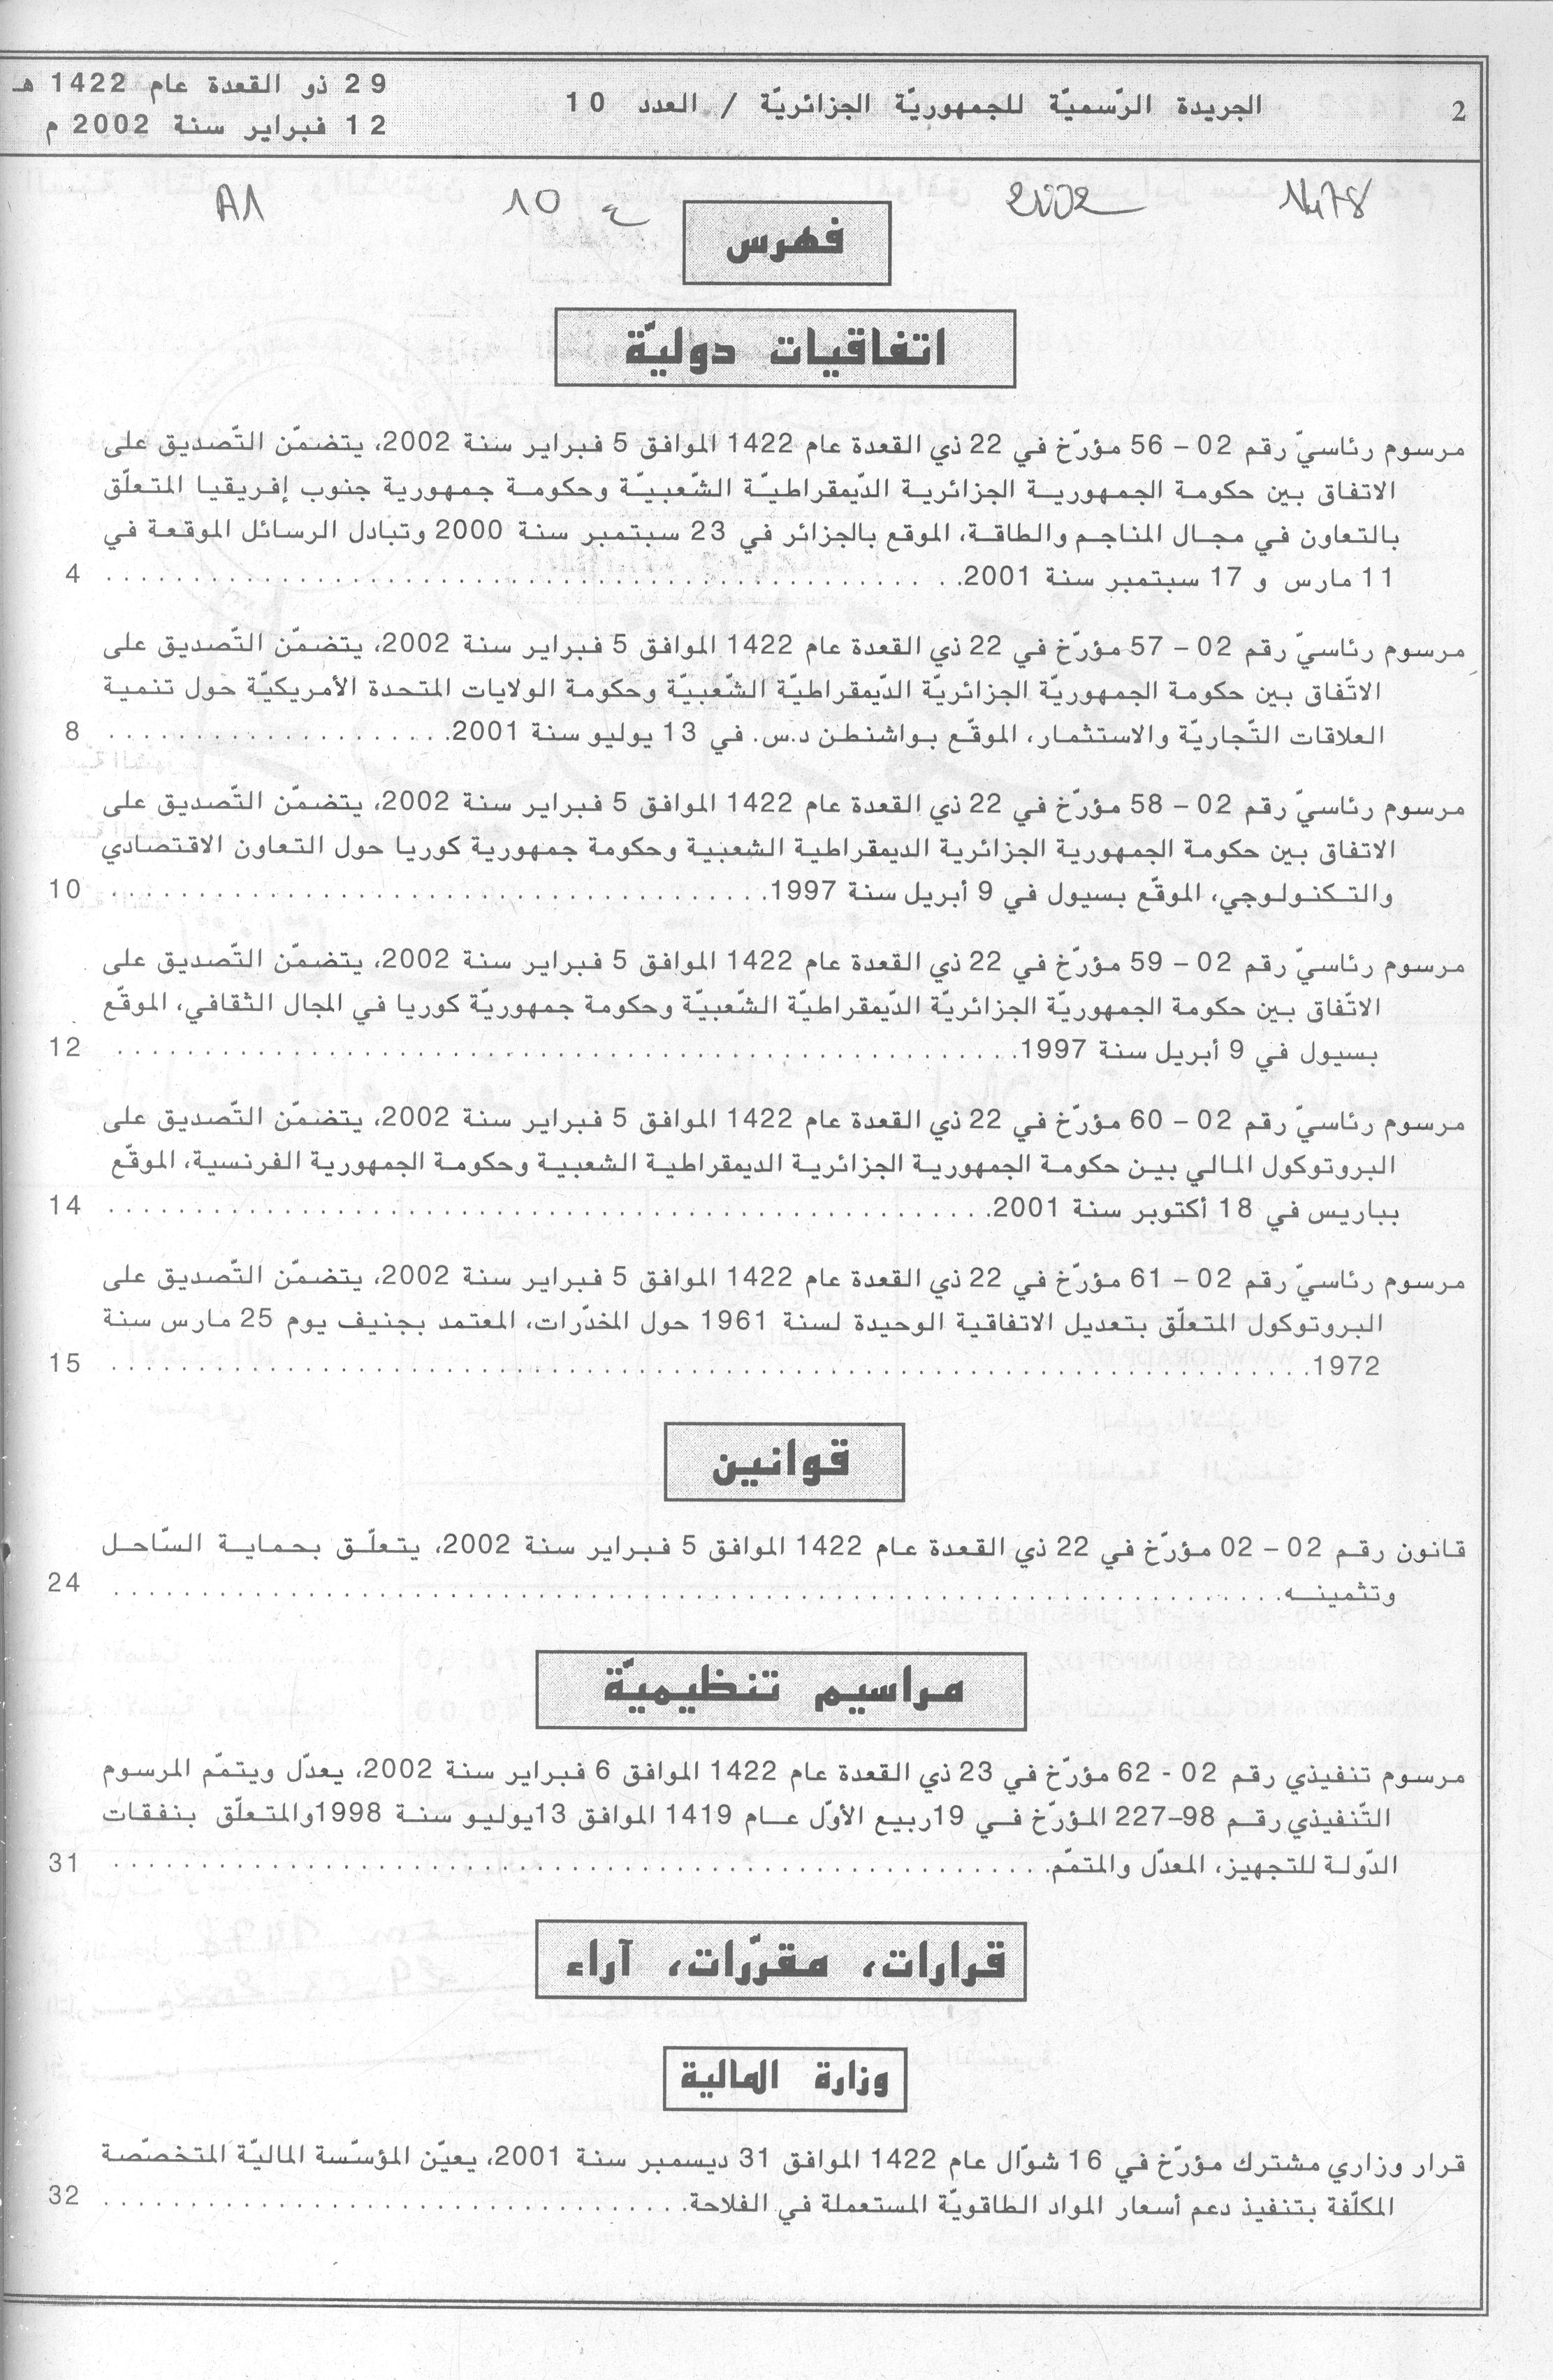 2
الجريدة الرّسميّة للجمهوريّة الجزائريّة / العدد 10
29 ذو القعدة عام 1422 هـ
12 فبراير سنة 2002 م
1478 2002 ع 10 A1
فهرس
اتفاقيات دوليّة
مرسوم رئاسيّ رقم 02 – 56 مؤرّخ في 22 ذي القعدة عام 1422 الموافق 5 فبراير سنة 2002، يتضمّن التّصديق على
الاتفاق بين حكومة الجمهورية الجزائرية الدّيمقراطيّة الشّعبيّة وحكومة جمهورية جنوب إفريقيا المتعلّق
بالتعاون في مجال المناجم والطاقة، الموقع بالجزائر في 23 سبتمبر سنة 2000 وتبادل الرسائل الموقعة في
11 مارس و 17 سبتمبر سنة 2001. . . . . . . . . . . . . . . . . . . . 4
مرسوم رئاسيّ رقم 02 – 57 مؤرّخ في 22 ذي القعدة عام 1422 الموافق 5 فبراير سنة 2002، يتضمّن التّصديق على
الاتّفاق بين حكومة الجمهوريّة الجزائريّة الدّيمقراطيّة الشّعبيّة وحكومة الولايات المتحدة الأمريكيّة حول تنمية
العلاقات التّجاريّة والاستثمار، الموقّع بواشنطن د.س. في 13 يوليو سنة 2001. . . . . . . . . . . . 8
مرسوم رئاسيّ رقم 02 – 58 مؤرّخ في 22 ذي القعدة عام 1422 الموافق 5 فبراير سنة 2002، يتضمّن التّصديق على
الاتفاق بين حكومة الجمهورية الجزائرية الديمقراطية الشعبية وحكومة جمهورية كوريا حول التعاون الاقتصادي
والتكنولوجي، الموقّع بسيول في 9 أبريل سنة 1997. . . . . . . . . . . . . . . . 10
مرسوم رئاسيّ رقم 02 – 59 مؤرّخ في 22 ذي القعدة عام 1422 الموافق 5 فبراير سنة 2002، يتضمّن التّصديق على
الاتّفاق بين حكومة الجمهوريّة الجزائريّة الدّيمقراطيّة الشّعبيّة وحكومة جمهوريّة كوريا في المجال الثقافي، الموقّع
بسيول في 9 أبريل سنة 1997. . . . . . . . . . . . . . . . . . . . 12
مرسوم رئاسيّ رقم 02 – 60 مؤرّخ في 22 ذي القعدة عام 1422 الموافق 5 فبراير سنة 2002، يتضمّن التّصديق على
البروتوكول المالي بين حكومة الجمهورية الجزائرية الديمقراطية الشعبية وحكومة الجمهورية الفرنسية، الموقّع
بباريس في 18 أكتوبر سنة 2001. . . . . . . . . . . . . . . . . . . . 14
مرسوم رئاسيّ رقم 02 – 61 مؤرّخ في 22 ذي القعدة عام 1422 الموافق 5 فبراير سنة 2002، يتضمّن التّصديق على
البروتوكول المتعلّق بتعديل الاتفاقية الوحيدة لسنة 1961 حول المخدّرات، المعتمد بجنيف يوم 25 مارس سنة
1972. . . . . . . . . . . . . . . . . . . . . . . . 15
قوانين
قانون رقم 02 – 02 مؤرّخ في 22 ذي القعدة عام 1422 الموافق 5 فبراير سنة 2002، يتعلّق بحماية السّاحل
وتثمينه. . . . . . . . . . . . . . . . . . . . . . . . 24
مراسيم تنظيميّة
مرسوم تنفيذي رقم 02 - 62 مؤرّخ في 23 ذي القعدة عام 1422 الموافق 6 فبراير سنة 2002، يعدّل ويتمّم المرسوم
التّنفيذي رقم 98–227 المؤرّخ في 19ربيع الأوّل عام 1419 الموافق 13يوليو سنة 1998والمتعلّق بنفقات
الدّولة للتجهيز، المعدّل والمتمّم. . . . . . . . . . . . . . . . . . . . 31
قرارات، مقرّرات، آراء
وزارة المالية
قرار وزاري مشترك مؤرّخ في 16 شوّال عام 1422 الموافق 31 ديسمبر سنة 2001، يعيّن المؤسّسة الماليّة المتخصّصة
المكلّفة بتنفيذ دعم أسعار المواد الطاقويّة المستعملة في الفلاحة. . . . . . . . . . . . . . 32